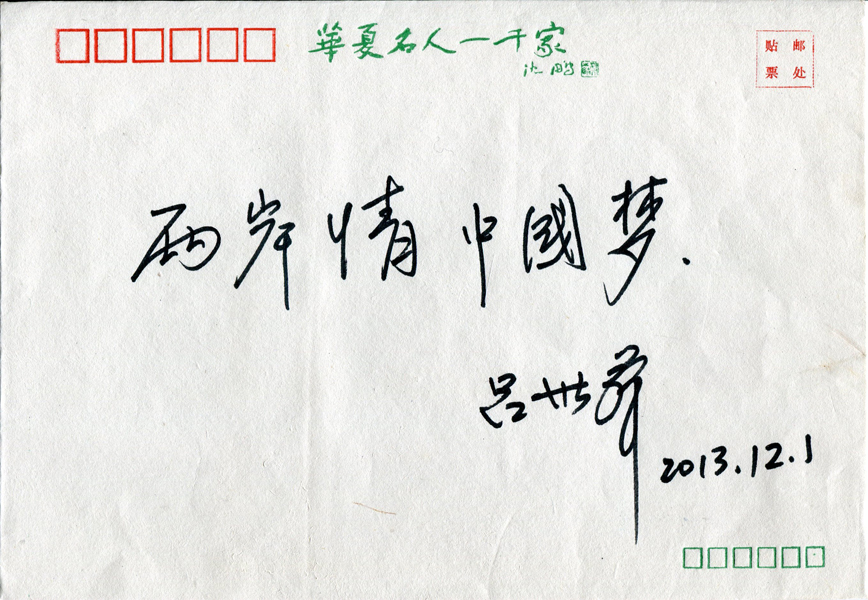 華夏名人一千家
沈鹏
贴 邮
票 处
两岸情 中國梦.
吕世
2013.12.1